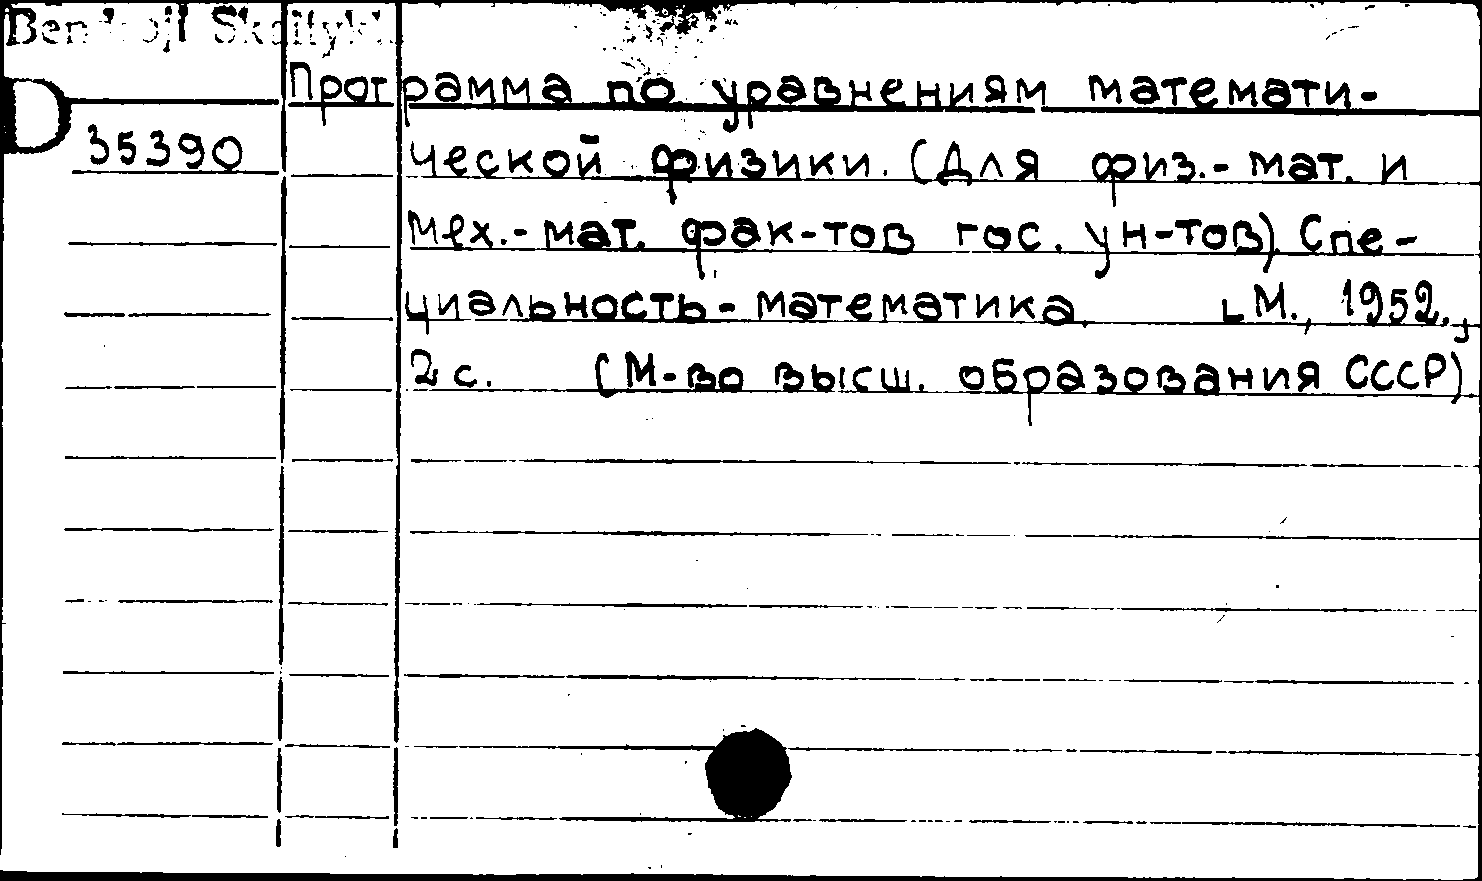 Bendroji Skaityk
Программа по уравнениям математи-
D
35390
ческой физики. (Для физ.- мат. и
мех.- мат. фак-тов гос. ун-тов). Спе-
циальность - математика. М., 1952.,
2 с. (М-во высш. образования СССР).